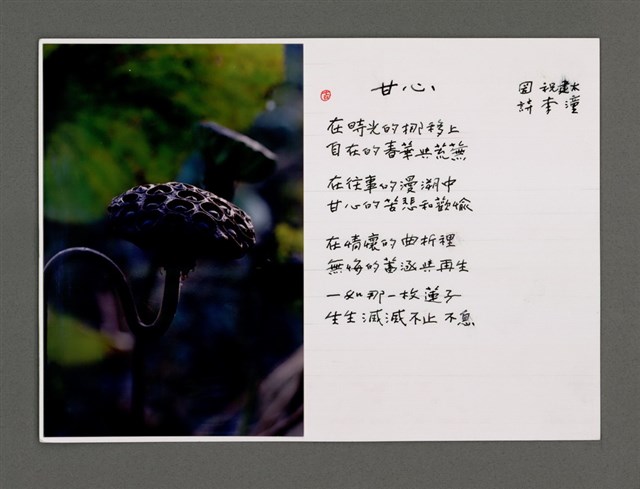 甘心
图 祝建太
詩 李潼
在時光的挪移上
自在的春華與荒蕪
在往事的漫湖中
甘心的苦想和歡愉
在情懷的曲折裡
無悔的蓄涵與再生
一如那一枚蓮子
生生滅滅不止不息